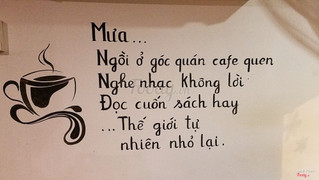 Mưa...
Ngồi ở góc quán cafe quen
Nghe nhạc không lời
Đọc cuốn sách hay
...Thế giới tự
nhiên nhỏ lại.
Foody.vn
Foody